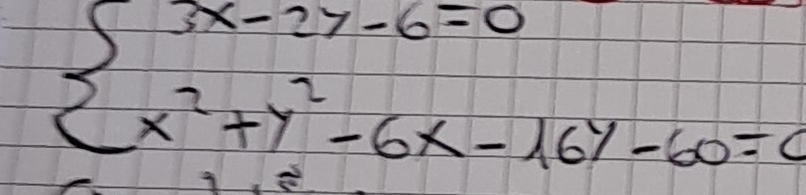 { 3x-2y-6=0
x²+y²-6x-16y-60=0